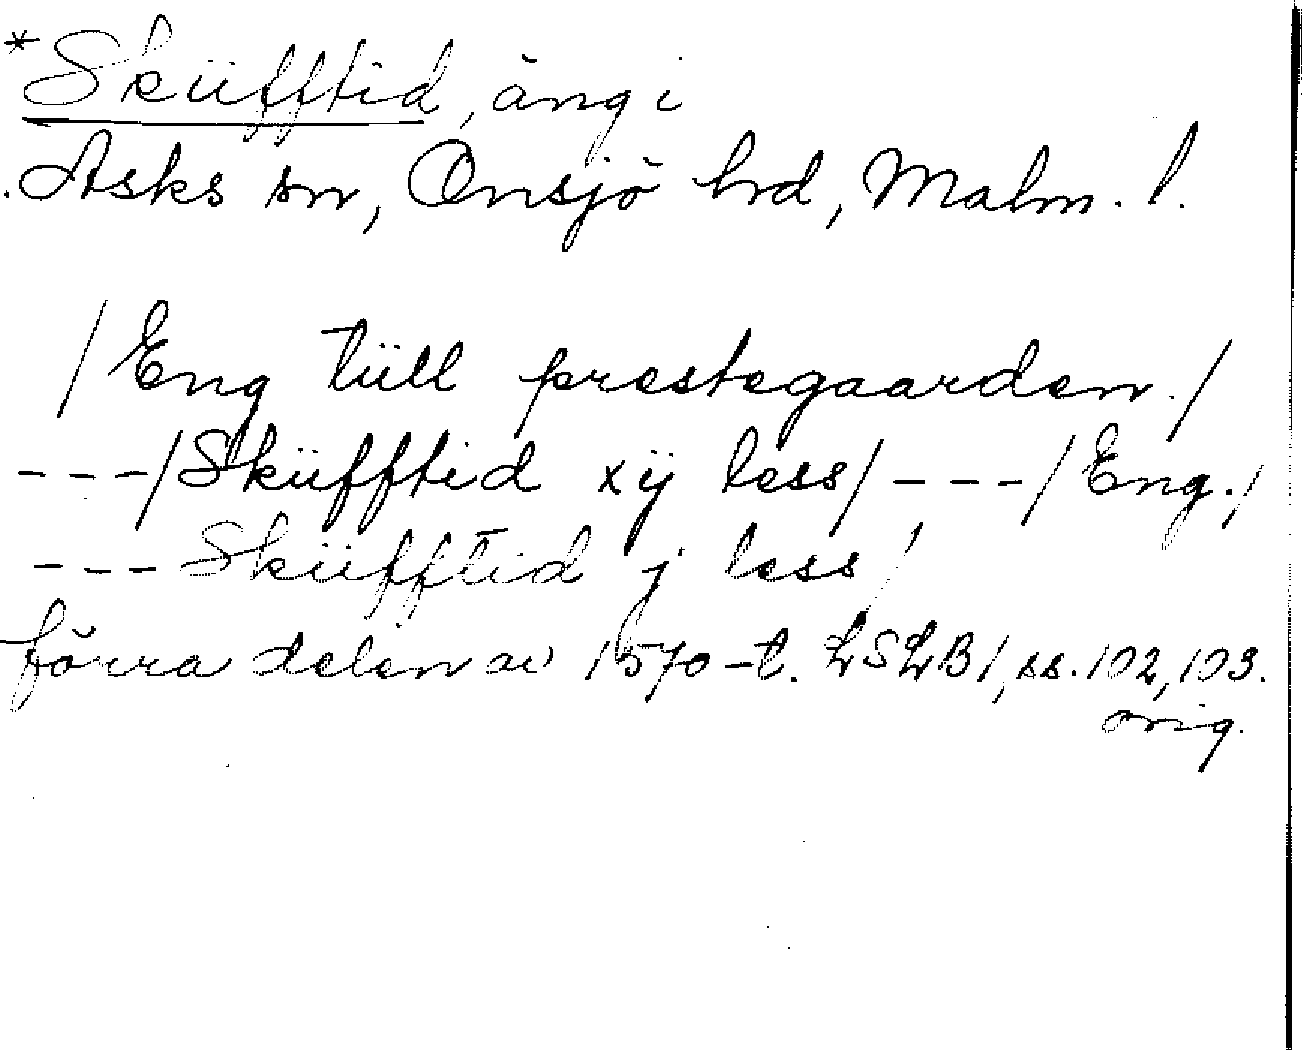 *Sküfftid, äng i
Asks sn, Onsjö hrd, Malm. l.
/Eng tüll prestegaarden./
---/Sküfftid xÿ less/---/Eng./
---Sküfftid j less/
förra delen av 1570-t. LSLB1, ss. 102, 103.
orig.